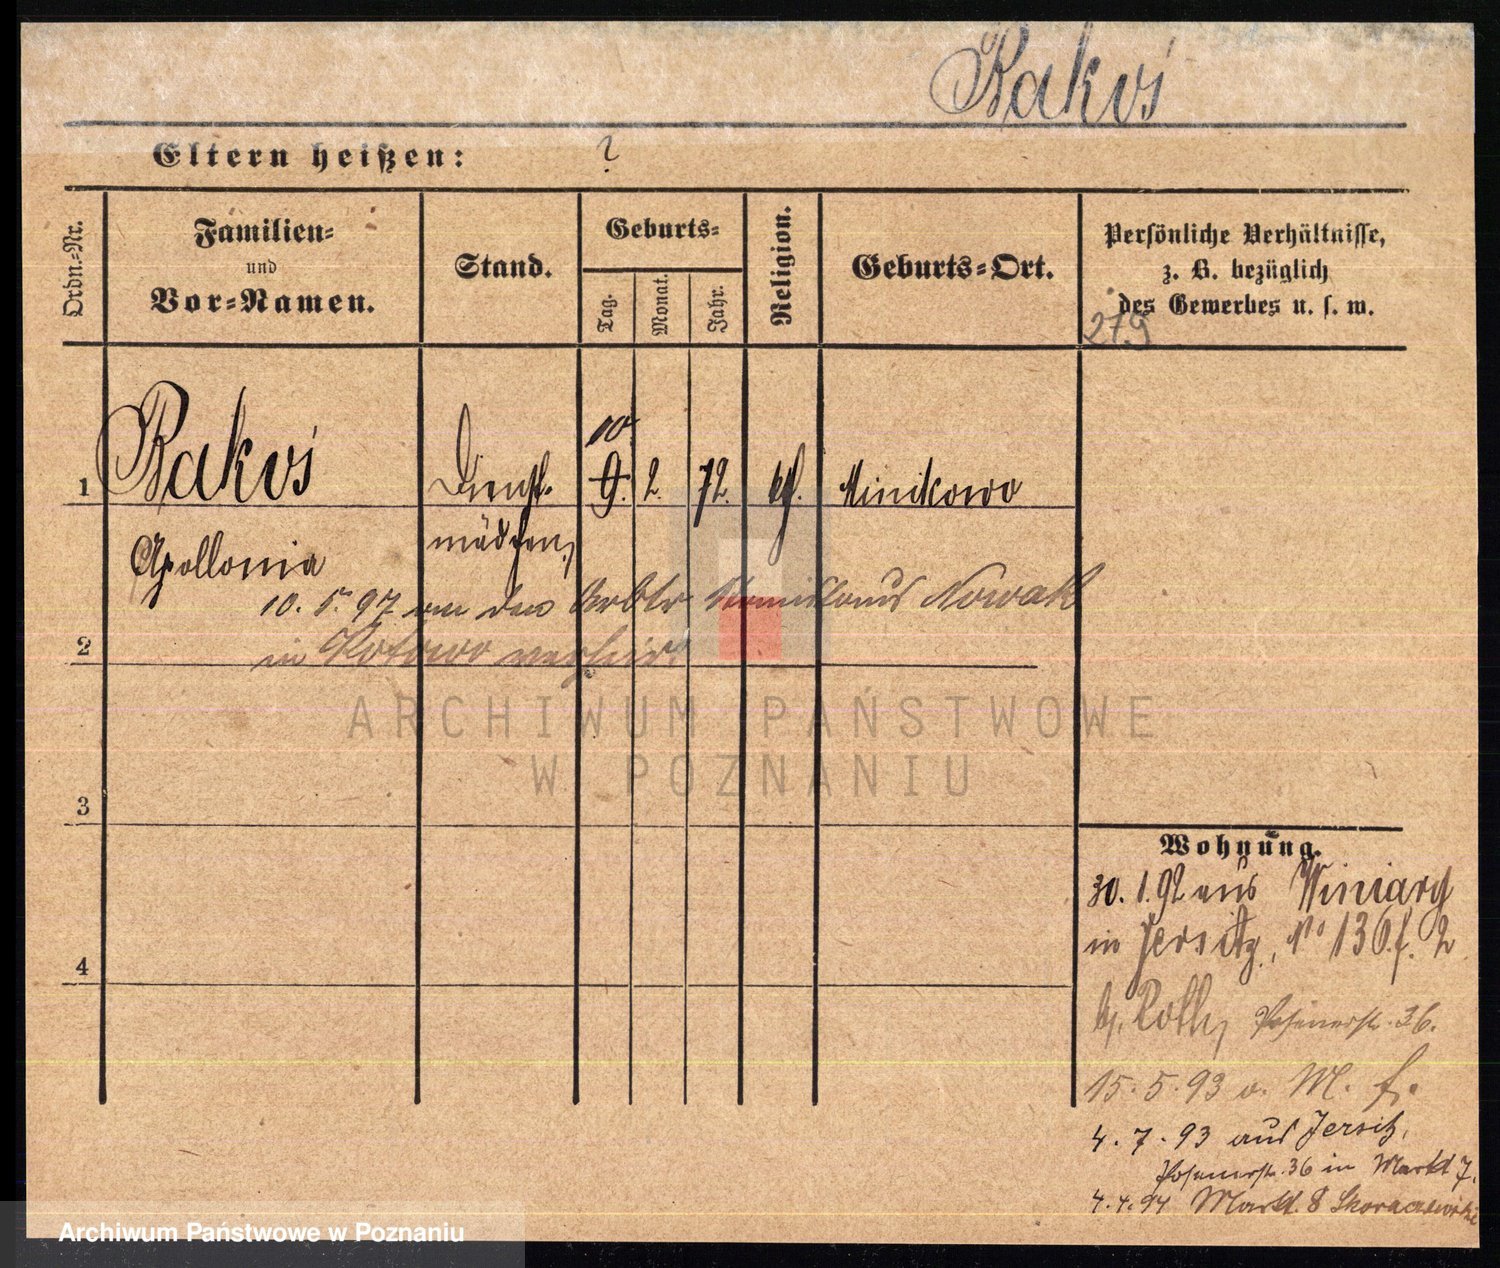 Rakoś
Eltern heißen: ?
Ordn.-Nr.
Familien-
und
Vor-Namen.
Stand.
Geburts-
Tag.
Monat.
Jahr.
Religion.
Geburts-Ort.
Persönliche Verhältnisse,
z. B. bezüglich
des Gewerbes u. s. w.
279
1 Rakoś Dienst- 10 9. 2. 72. kth. Minikowo
Apollonia mädchen
10. 5. 97 an den Arbtr Stanislaus Nowak
2 in Kotowo verheir.
ARCHIWUM PAŃSTWOWE
W POZNANIU
3
4
Wohnung.
30. 1. 92 aus Winiary
in Jersitz, No 136 f. 2
b. Roth, Posenerstr. 36.
15. 5. 93 a. M. f.
4. 7. 93 aus Jersitz,
Posenerstr. 36 in Markt 7.
4. 4. 94 Markt 8 Skoraczewski
Archiwum Państwowe w Poznaniu